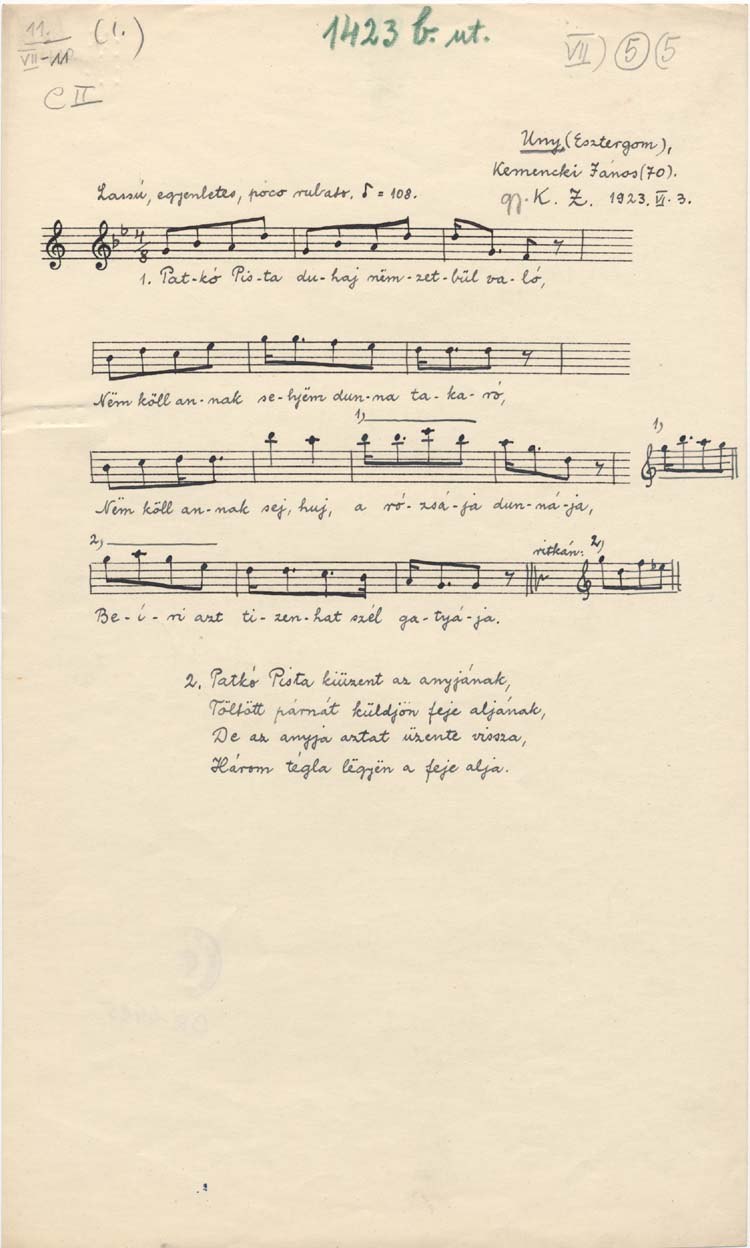 11. (1.) 1423 b. ut. VII) 5 (5
VII-11
C II
Uny (Esztergom),
Kemencki János (70).
Lassú, egyenletes, poco rubato. ♪ = 108. gy. K. Z. 1923. VI. 3.
4/8
1. Pat-kó Pis-ta du-haj nëm-zet-bül va-ló,
Nëm köll an-nak se-lyëm dun-na ta-ka-ró,
1) 1)
Nëm köll an-nak sej, huj, a ró-zsá-ja dun-ná-ja,
2) ritkán: 2)
Be-í-ri azt ti-zen-hat szél ga-tyá-ja.
2. Patkó Pista kiüzent az anyjának,
Töltött párnát küldjön feje aljának,
De az anyja aztat üzente vissza,
Három tégla lëgyën a feje alja.